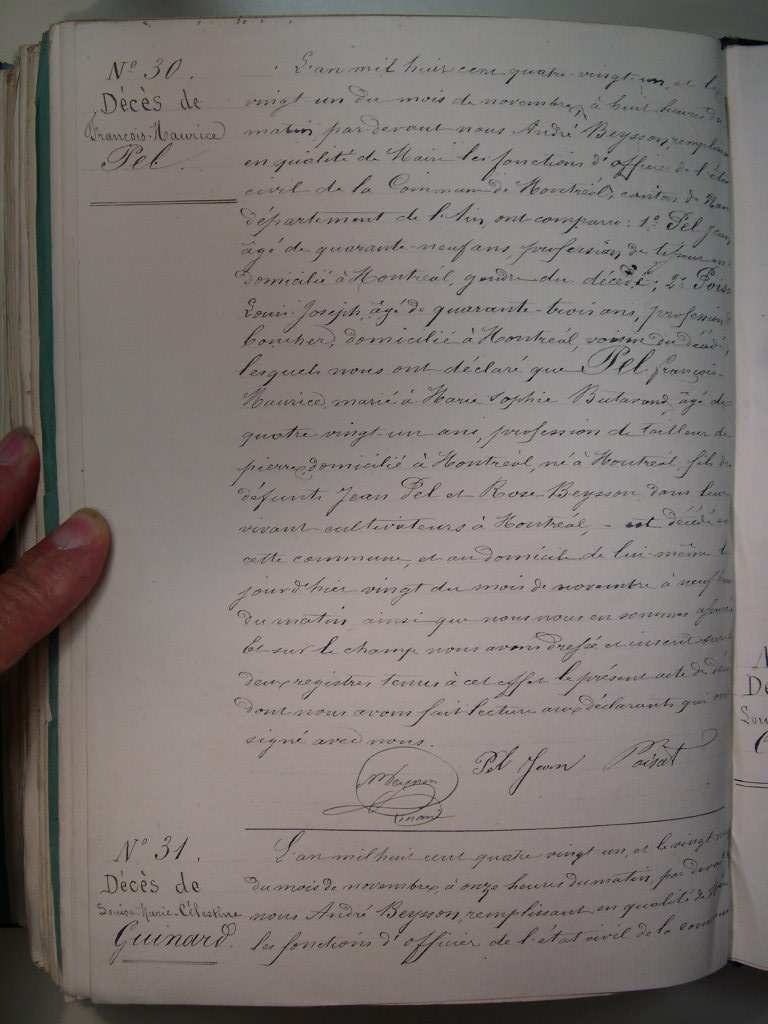 Nº 30.
Décès de
François-Maurice
Pel.
L'an mil huit cent quatre-vingt-un, et le
vingt un du mois de novembre, à huit heures du
matin, par devant nous André Beysson, remplissant
en qualité de Maire les fonctions d'officier de l'état
civil de la Commune de Montréal, canton de Nan
département de l'Ain, ont comparu: 1º Pel Jean,
âgé de quarante-neuf ans, profession de
domicilié à Montréal, gendre du décédé; 2º Poisat
Louis-Joseph, âgé de quarante-trois ans, profession
boucher, domicilié à Montréal, voisin du décédé,
lesquels nous ont déclaré que Pel François-
Maurice, marié à Marie Sophie Butavand, âgé de
quatre vingt-un ans, profession de tailleur de
pierres, domicilié à Montréal, né à Montréal, fils de
défunts Jean Pel et Rose Beysson dans leur
vivant cultivateurs à Montréal, - est décédé en
cette commune, et au domicile de lui-même
jourd'hier vingt du mois de novembre à neuf heures
du matin, ainsi que nous nous en sommes assuré
Et sur le champ nous avons dressé et inscrit sur
deux registres tenus à cet effet le présent acte de décès
dont nous avons fait lecture aux déclarants qui ont
signé avec nous.
Pel Jean Poisat
Nº 31.
Décès de
Louise-Marie-Célestine
Guinard.
L'an mil huit cent quatre vingt un, et le vingt
du mois de novembre, à onze heures du matin, par devant
nous André Beysson, remplissant en qualité de Maire
les fonctions d'officier de l'état civil de la commune